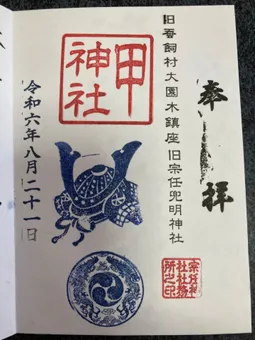 奉拝
旧香飼村大園木鎮座旧宗任兜明神社
甲神社
令和六年八月二十一日
宗任神社社務所之印